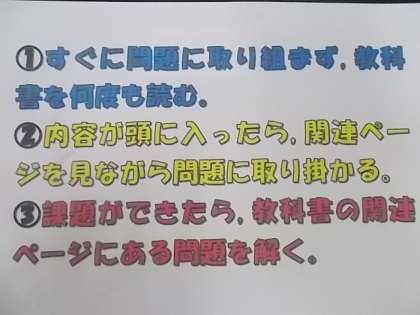 ①すぐに問題に取り組まず,教科
書を何度も読む。
②内容が頭に入ったら,関連ペー
ジを見ながら問題に取り掛かる。
③課題ができたら,教科書の関連
ページにある問題を解く。